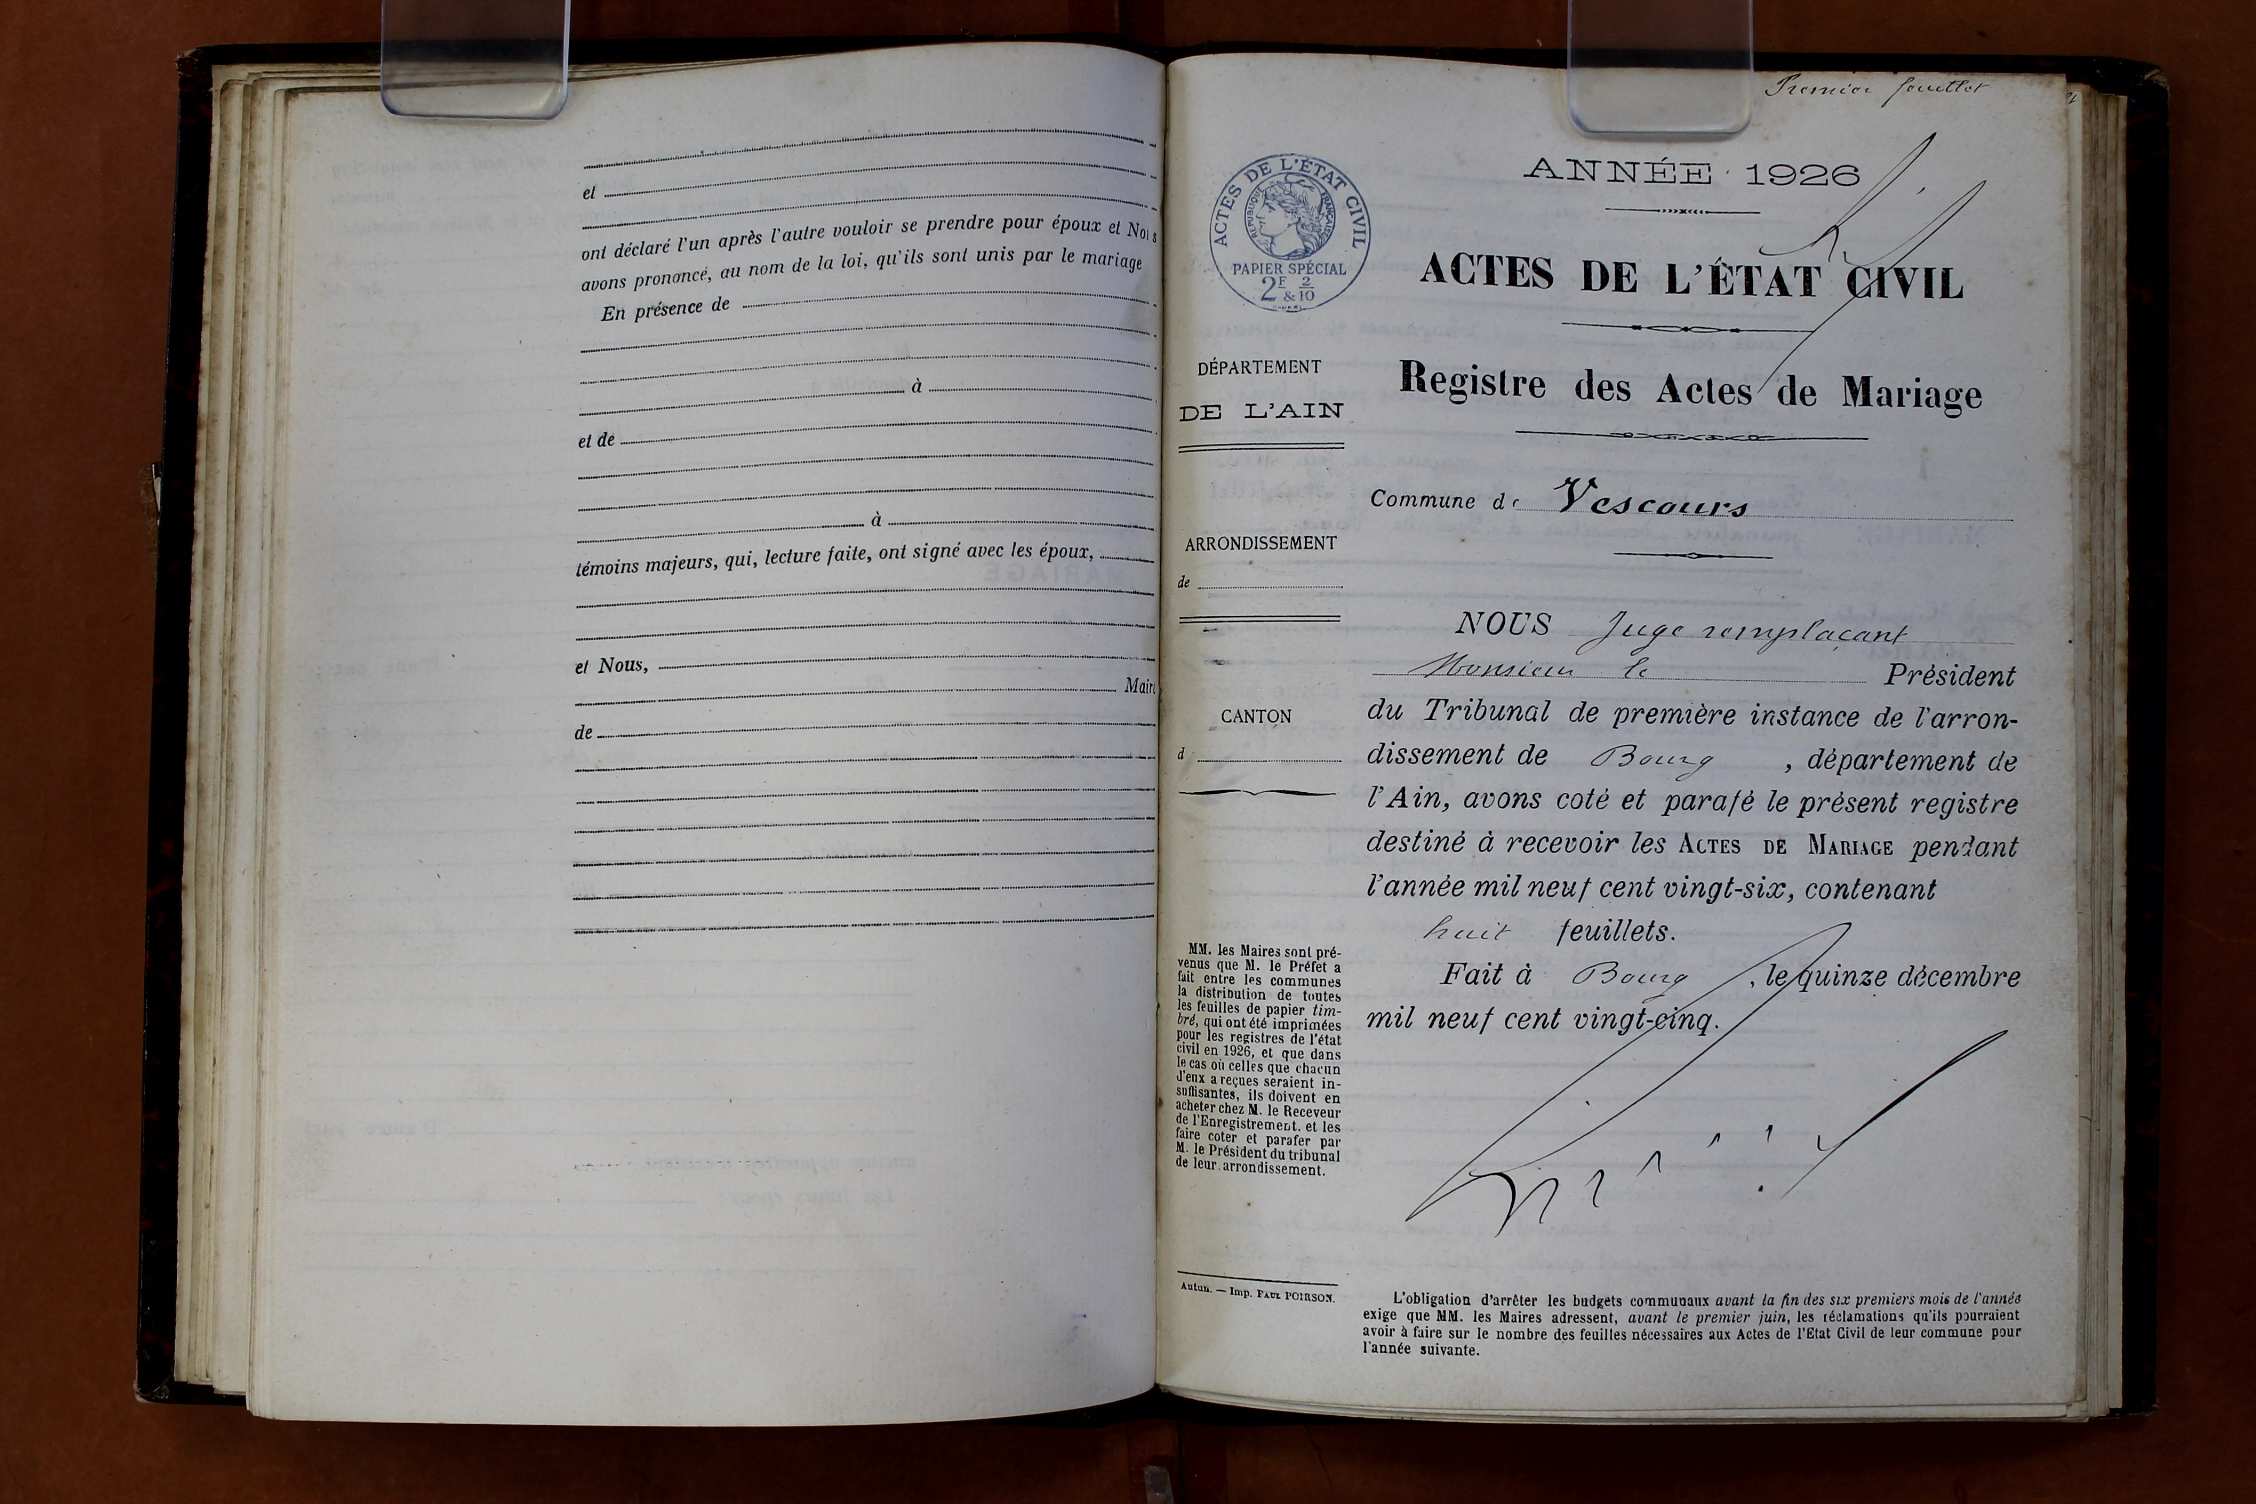 et
ont déclaré l'un après l'autre vouloir se prendre pour époux et Nous
avons prononcé, au nom de la loi, qu'ils sont unis par le mariage
En présence de
à
et de
à
témoins majeurs, qui, lecture faite, ont signé avec les époux,
et Nous,
Maire
de
Premier feuillet
ANNÉE 1926
ACTES DE L'ÉTAT CIVIL
RÉPUBLIQUE FRANÇAISE
PAPIER SPÉCIAL
2F & 2/10
ACTES DE L'ÉTAT CIVIL
Registre des Actes de Mariage
DÉPARTEMENT
DE L'AIN
Commune de Vescours
ARRONDISSEMENT
de
CANTON
d
NOUS Juge remplaçant
Monsieur le Président
du Tribunal de première instance de l'arron-
dissement de Bourg, département de
l'Ain, avons coté et parafé le présent registre
destiné à recevoir les ACTES DE MARIAGE pendant
l'année mil neuf cent vingt-six, contenant
huit feuillets.
Fait à Bourg, le quinze décembre
mil neuf cent vingt-cinq.
MM. les Maires sont pré-
venus que M. le Préfet a
fait entre les communes
la distribution de toutes
les feuilles de papier tim-
bré, qui ont été imprimées
pour les registres de l'état
civil en 1926, et que dans
le cas où celles que chacun
d'eux a reçues seraient in-
suffisantes, ils doivent en
acheter chez M. le Receveur
de l'Enregistrement. et les
faire coter et parafer par
M. le Président du tribunal
de leur arrondissement.
Autun. — Imp. PAUL POIRSON.
L'obligation d'arrêter les budgets communaux avant la fin des six premiers mois de l'année
exige que MM. les Maires adressent, avant le premier juin, les réclamations qu'ils pourraient
avoir à faire sur le nombre des feuilles nécessaires aux Actes de l'Etat Civil de leur commune pour
l'année suivante.